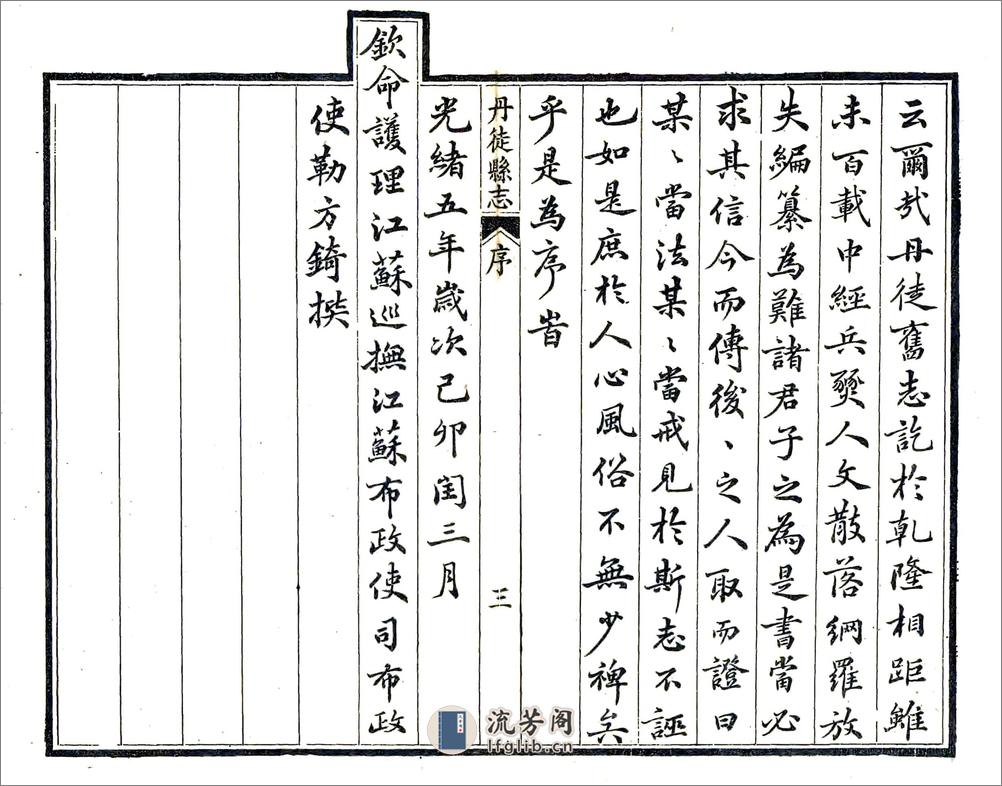 云爾哉丹徒舊志訖於乾隆相距雖
未百載中經兵燹人文散落網羅放
失編纂為難諸君子之為是書當必
求其信今而傳後〻之人取而證曰
某〻當法某〻當戒見於斯志不誣
也如是庶於人心風俗不無少裨矣
乎是為序旹
丹徒縣志 序 三
光緒五年歲次己卯閏三月
欽命護理江蘇巡撫江蘇布政使司布政
使勒方錡撰
流芳阁
lfglib.cn